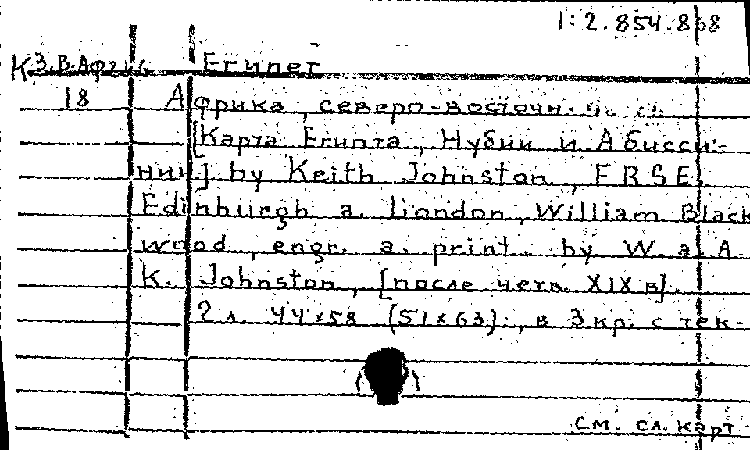 1:2.854.808
К З.В.Афр.
Египет
18 Африка, северо-восточн.
[Карта Египта, Нубии и Абисси-
нии] by Keith Johnston, F R S E.
Edinburgh a. London, William Black
wood, engr. a. print. by W. a. A
K. Johnston, [после четв. XIX в].
2 л. 44x58 (51x63)., в 3 кр. с тек-
См. сл. карт